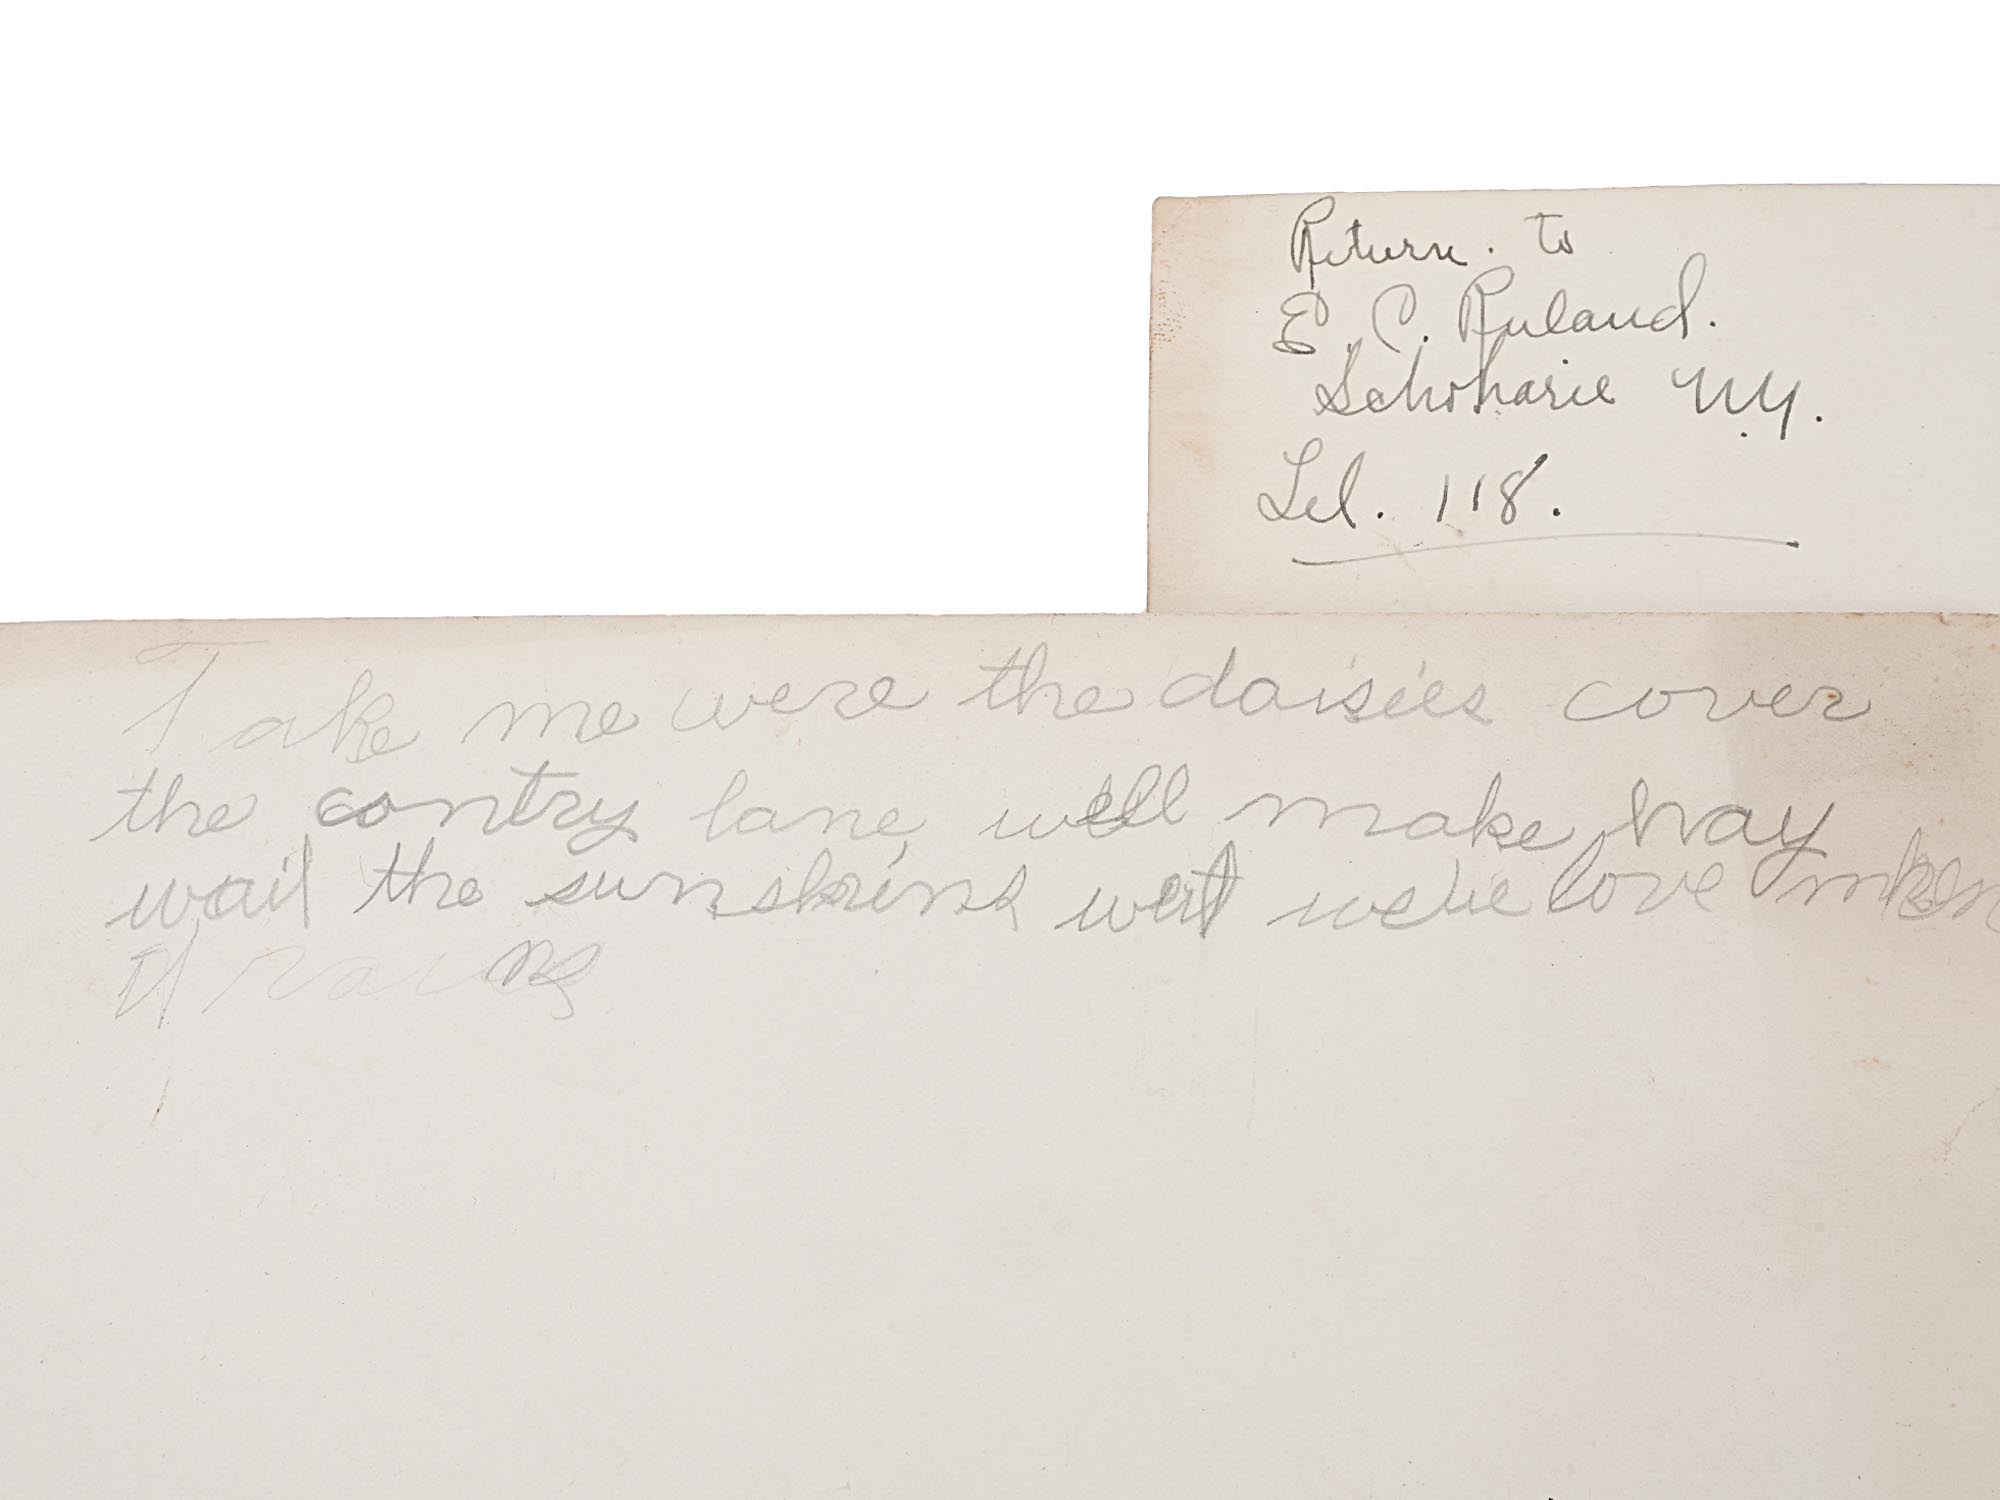 Return. to
E. C. Ruland.
Schoharie N.Y.
Tel. 118.
Take me were the daisies cover
the contry lane, will make hay
wail the sunshins love
If rains